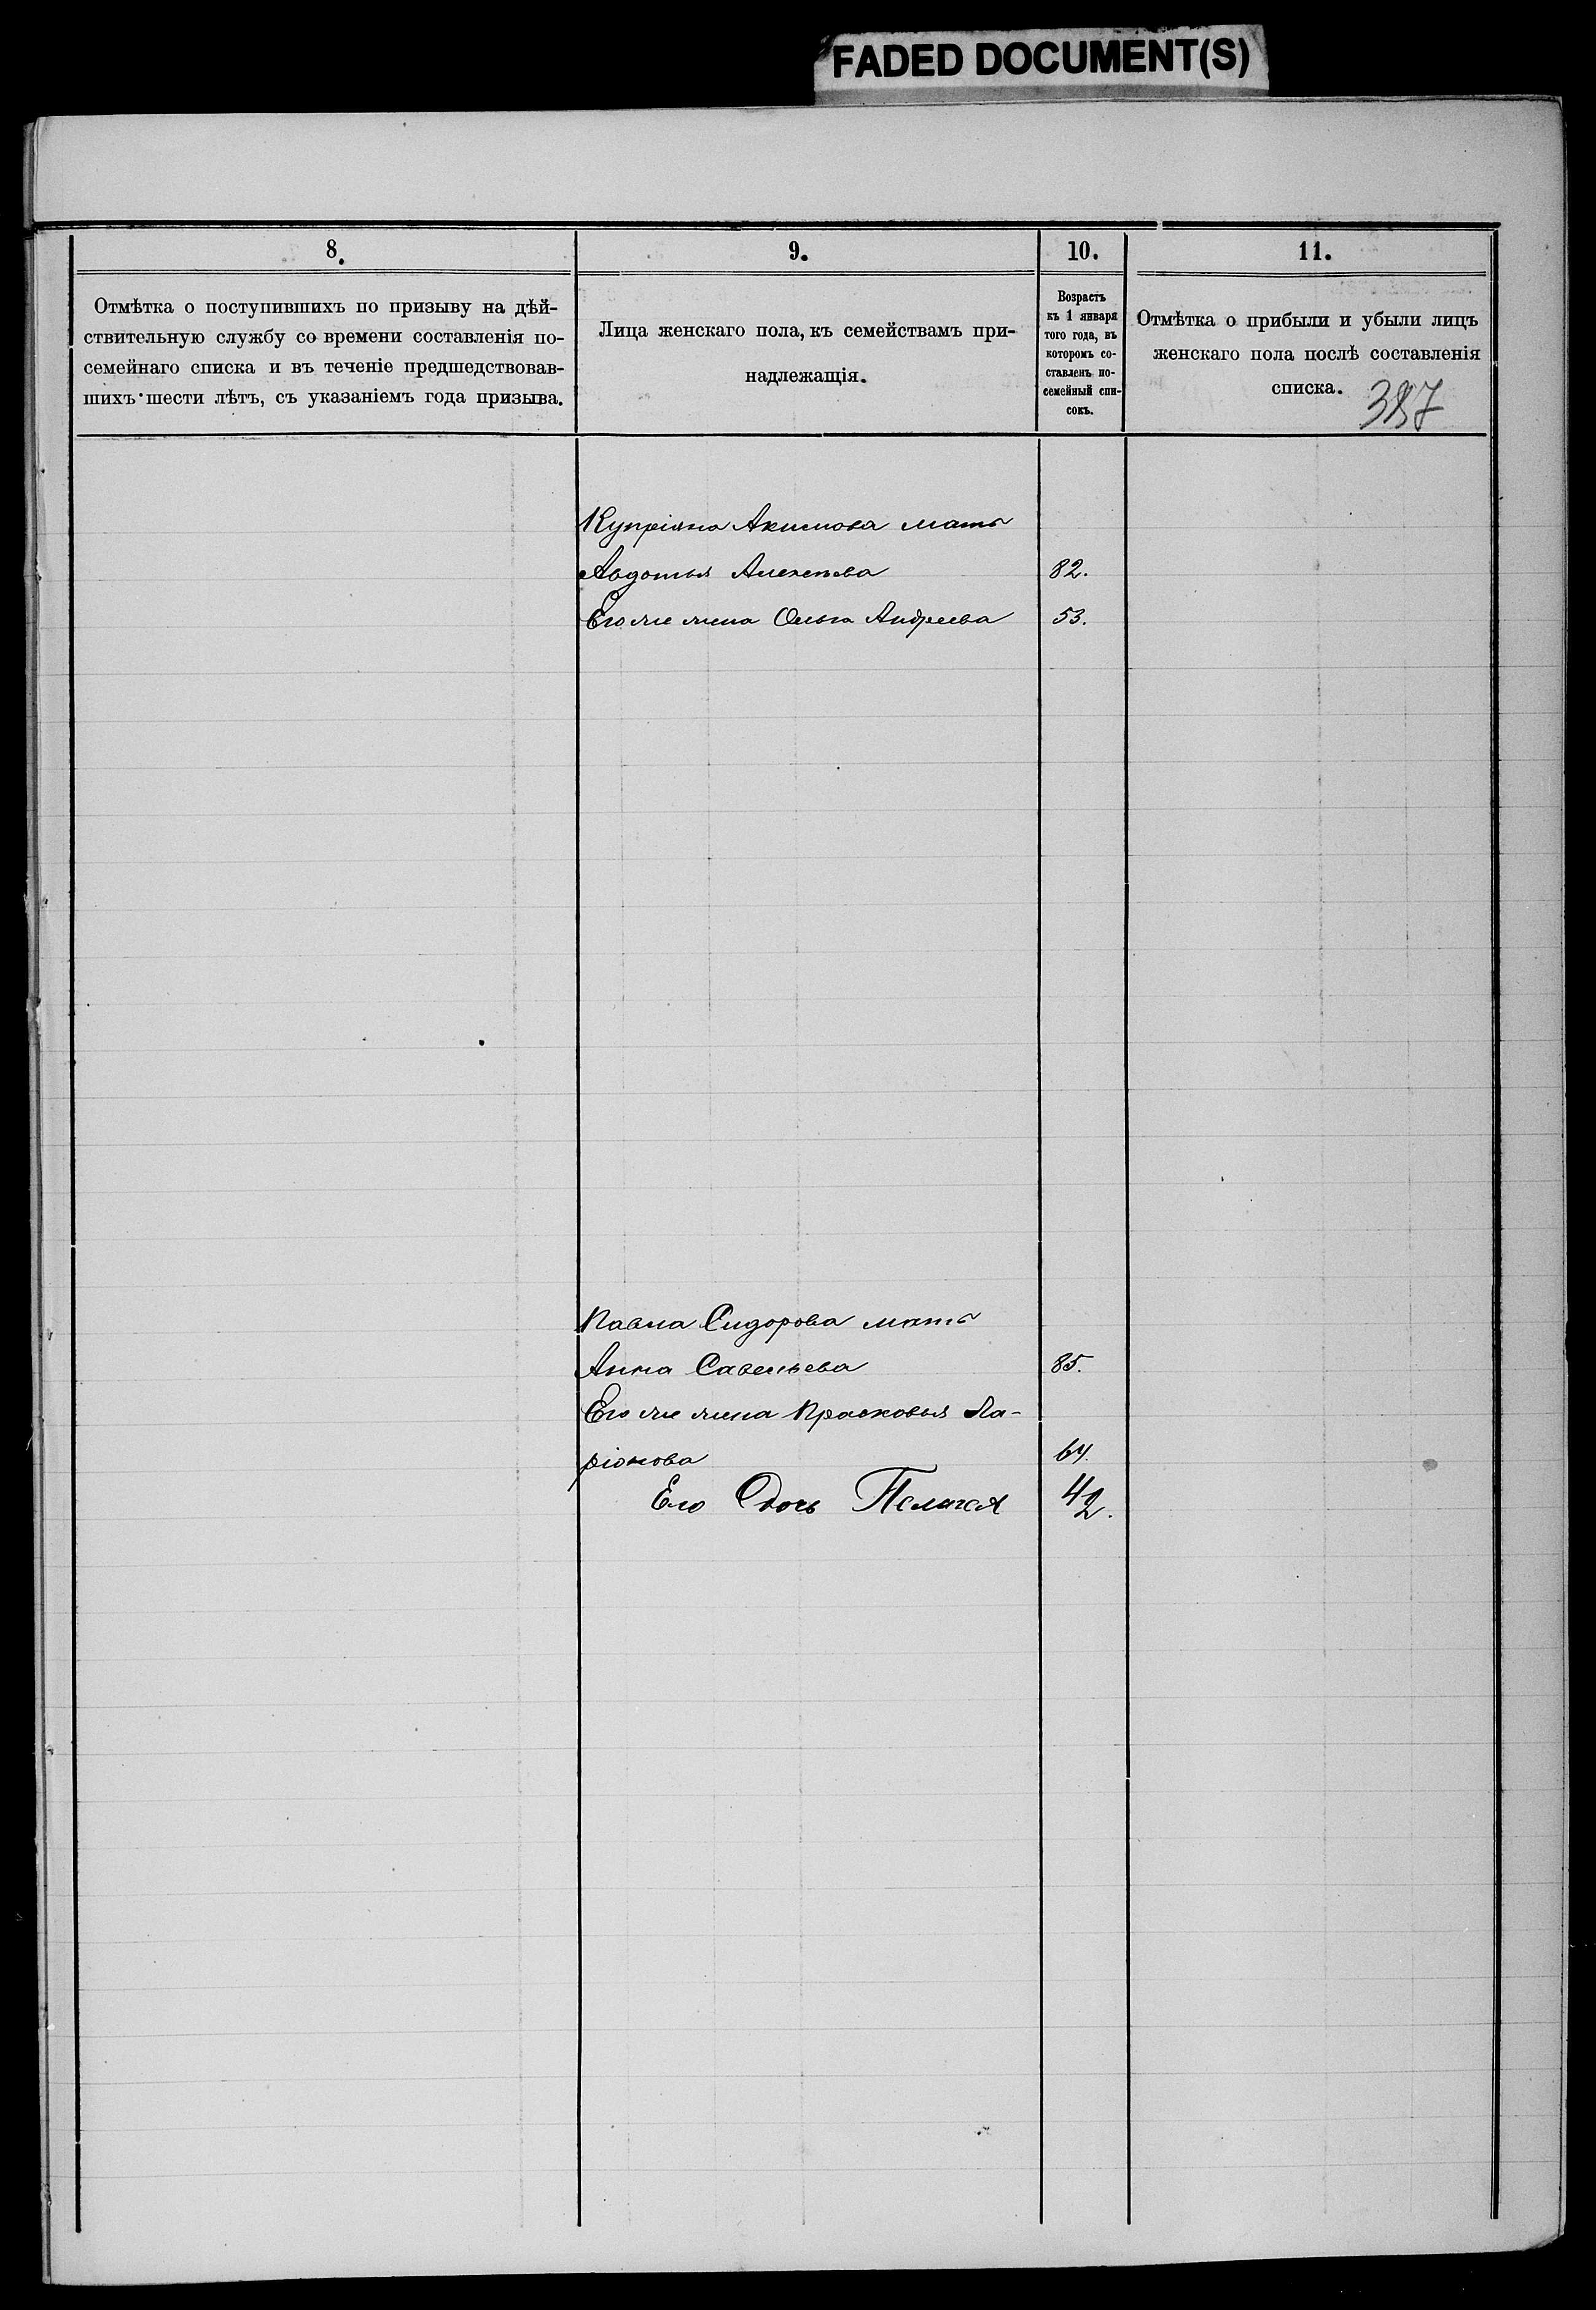 FADED DOCUMENT(S)
8.
9.
10.
11.
Отмѣтка о поступившихъ по призыву на дѣй-
ствительную службу со времени составленія по-
семейнаго списка и въ теченіе предшедствовав-
шихъ шести лѣтъ, съ указаніемъ года призыва.
Лица женскаго пола, къ семействамъ при-
надлежащія.
Возрастъ
къ 1 января
того года, въ
которомъ со-
ставленъ по-
семейный спи-
сокъ.
Отмѣтка о прибыли и убыли лицъ
женскаго пола послѣ составленія
списка.
387
Купріяна Акимова мать
Авдотья Алексѣева 82.
Его же жена Ольга Андреева 53.
Павла Сидорова мать
Анна Савельева 85.
Его же жена Прасковья Ла-
ріонова 64.
Его Дочь Пелагея 42.